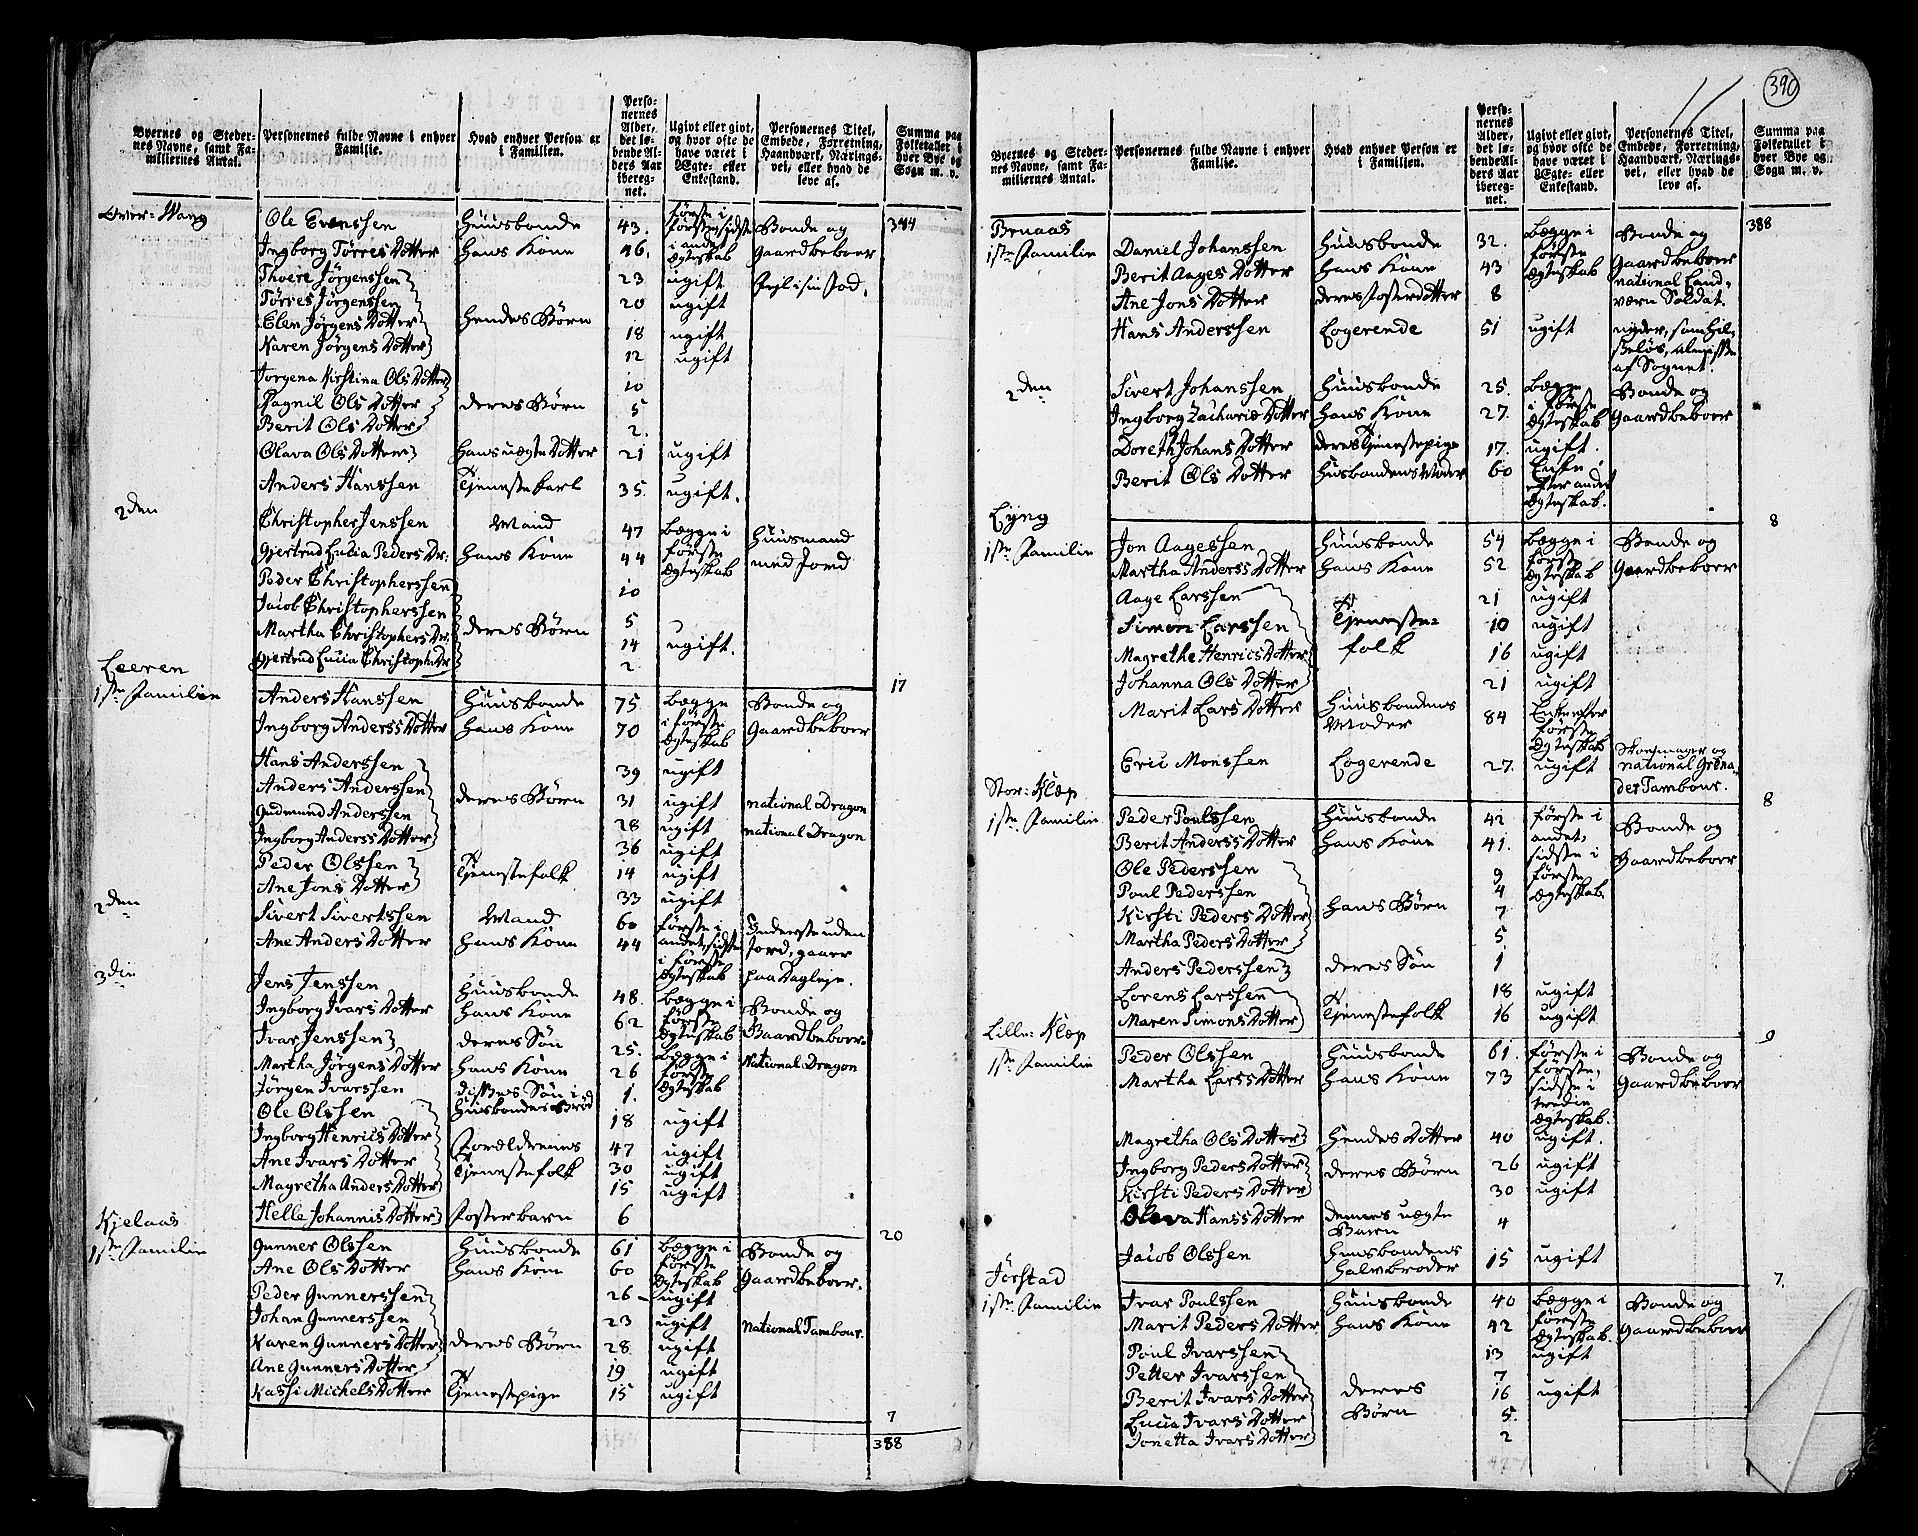 390
Byernes og Steder-
nes Navne, samt Fa-
miliernes Antal.
Personernes fulde Navne i enhver
Familie.
Hvad enhver Person er
i Familien.
Perso-
nernes
Alder,
det lø-
bende Al-
ders Aar
iberegnet.
Ugivt eller givt,
og hvor ofte de
have været i
Ægte- eller
Enkestand.
Personernes Titel,
Embede, Forretning,
Haandværk, Nærings-
vei, eller hvad de
leve af.
Summa paa
Folketallet i
hver Bye og
Sogn m. v.
Over-Wang
Ole Evenssen Huusbonde 43. første i første, sidste Bonde og 344
Ingborg Tørres Dotter hans Kone 46. i andet Ægteskab Gaardbeboer
Thoere Jörgenssen 23 ugift
Törres Jörgenssen 20 ugift
Elen Jörgens Dotter hendes Börn 18 ugift
Karen Jörgens Dotter 12 ugift
Jorgena Kirstina Ols Dotter 10
Pagnil Ols Dotter deres Börn 5
Berit Ols Dotter 2.
Olava Ols Dotter hans uægte Dotter 21 ugift
Anders Hanssen Tjenestekarl 35. ugift.
2den
Christopher Jenssen Mand 47 begge i Huusmand
Gjertrud Lucia Peders Dr. hans Kone 44 første Ægteskab med Jord
Peder Christopherssen 10
Jacob Christopherssen 5
Martha Christophers Dr. deres Börn 14 ugift.
Gjertrud Lucia Christoph. Dr. 2
Leeren 17
1ste Familie
Anders Hanssen Huusbonde 75. begge Bonde og
Ingborg Anderss Dotter hans Kone 70 i første Ægteskab Gaardbeboer
Hans Anderssen 39 ugift
Anders Anderssen deres Börn 31 ugift national Dragon
Gudmund Anderssen 28 ugift national Dragon
Ingborg Anderss Dotter 36 ugift
Peder Olssen Tjenestefolk 14 ugift
Ane Jons Dotter 33 ugift
2den
Sivert Sivertssen Mand 60 første i Inderste uden
Ane Anders Dotter hans Kone 44 andet, sidste i første Ægteskab Jord, gaaer paa Dagleje.
3die
Jens Jenssen Huusbonde 48. begge i Bonde og
Ingborg Ivars Dotter hans Kone 62 første Ægteskab Gaardbeboer
Ivar Jenssen deres Sön 25. begge i National Dragon
Martha Jörgens Dotter hans Kone 26 første Ægteskab
Jörgen Ivarssen disses Sön i Huusbondes Bröd 1.
Ole Olssen 18 ugift
Ingborg Henrics Dotter Forældrenes 47 ugift
Ane Ivars Dotter Tjenestefolk 30 ugift
Magretha Anders Dotter 15 ugift
Helle Johannis Dotter Fosterbarn 6
Kjelaas 20
1ste Familie
Gunner Olssen Huusbonde 61 begge i Bonde og
Ane Ols Dotter hans Kone 60 første Ægteskab Gaardbeboer.
Peder Gunnerssen 26 ugift
Johan Gunnerssen 23 ugift national Tambour.
Karen Gunners Dotter deres Börn 28 ugift
Ane Gunners Dotter 19 ugift
Kassi Michels Dotter Tjenestepige 15 ugift
7
388
Byernes og Steder-
nes Navne, samt Fa-
miliernes Antal.
Personernes fulde Navne i enhver
Familie.
Hvad enhver Person er
i Familien.
Perso-
nernes
Alder,
det lø-
bende Al-
ders Aar
iberegnet.
Ugivt eller givt,
og hvor ofte de
have været i
Ægte- eller
Enkestand.
Personernes Titel,
Embede, Forretning,
Haandværk, Nærings-
vei, eller hvad de
leve af.
Summa paa
Folketallet i
hver Bye og
Sogn m. v.
Bruaas 388
1ste Familie
Daniel Johanssen Huusbonde 32. begge i Bonde og
Berit Aages Dotter hans Kone 43 første Ægteskab Gaardbeboer national Land-
Ane Jons Dotter deres Fosterdotter 8 værn Soldat.
Hans Anderssen Logerende 51 ugift nyder, som hjel-
peløs, Almisse
af Sognet.
2den
Sivert Johanssen Huusbonde 25. begge Bonde og
Ingborg Zachariæ Dotter hans Kone 27. i første Ægteskab Gaardbeboer
Doreth Johans Dotter deres Tjenestepige 17. ugift.
Berit Ols Dotter Husbondens Moder 60 Enke efter andet Ægteskab.
Lyng 8
1ste Familie
Jon Aagessen Huusbonde 54 begge i Bonde og
Martha Anderss Dotter hans Kone 52 første Ægteskab Gaardbeboer
Aage Larssen 21 ugift
Simon Larssen Tjeneste- 10 ugift
Magrethe Henrics Dotter folk 16 ugift
Johanna Ols Dotter 21 ugift
Marit Lars Dotter Huusbondens Moder 84 Enke efter første Ægteskab
Eric Monssen Logerende 27. ugift Skomager og
national Grena-
deer Tambour.
Stor-Klæp 8
1ste Familie
Peder Poulssen Huusbonde 42 første i Bonde og
Berit Anderss Dotter hans Kone 41. andet, sidste i Gaardbeboer
Ole Pederssen 9 første
Poul Pederssen 4 Ægteskab.
Kirsti Peders Dotter hans Börn 7
Martha Peders Dotter 5
Anders Pederssen deres Sön 1
Lorens Larssen 18 ugift
Maren Simons Dotter Tjenestefolk 16 ugift
Lille-Klæp 9
1ste Familie
Peder Olssen Huusbonde 61. første i Bonde og
Martha Larss Dotter hans Kone 73 første, sidste i tredie Ægteskab. Gaardbeboer
Magretha Ols Dotter hendes Dotter 40 ugift.
Ingborg Peders Dotter deres Börn 26 ugift
Kirsti Peders Dotter 30 ugift
Oleva Hanss Dotter dennes uægte Barn 4
Jacob Olssen Huusbondens Halvbroder 15 ugift
Jörstad 7.
1ste Familie
Ivar Poulssen Huusbonde 40 begge i Bonde og
Marit Peders Dotter hans Kone 42 første Ægteskab. Gaardbeboer
Poul Ivarssen 13 ugift
Petter Ivarssen 7
Berit Ivars Dotter deres 16 ugift
Lucia Ivars Dotter Börn 5.
Jonetta Ivars Dotter 2